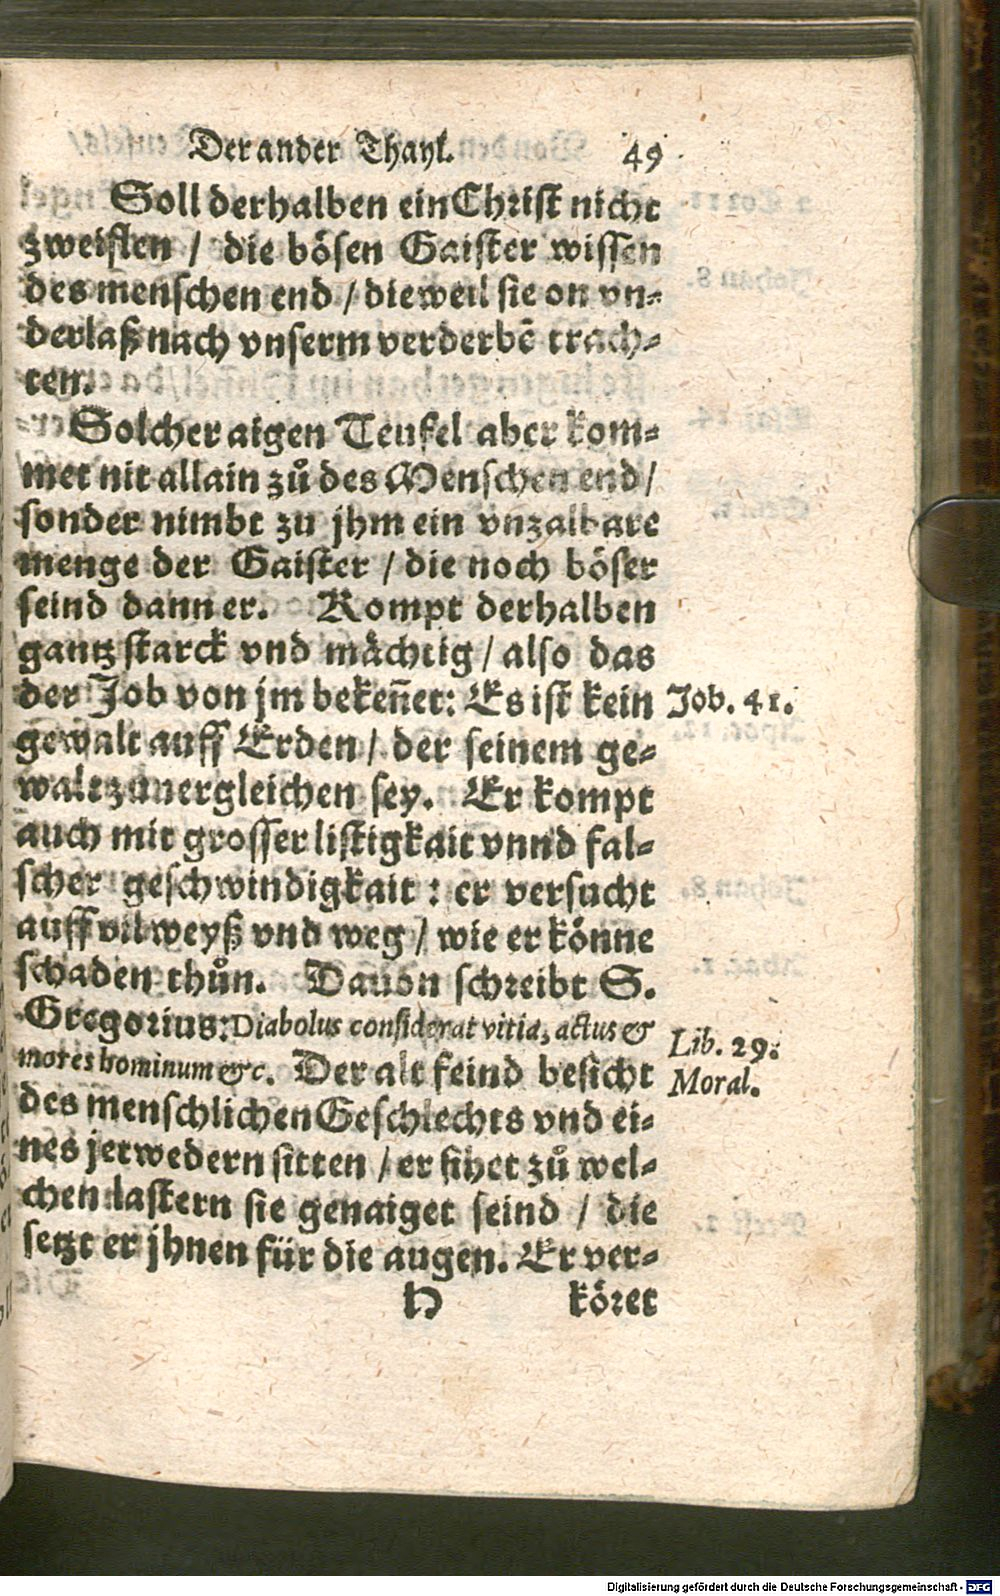 Der ander Thayl. 49
Soll derhalben ein Christ nicht
zweiflen / die bösen Gaister wissen
des menschen end / dieweil sie on vn-
derlaß nach vnserm verderbẽ trach-
ten.
Solcher aigen Teufel aber kom-
met nit allain zů des Menschen end /
sonder nimbt zu jhm ein vnzalbare
menge der Gaister / die noch böser
seind dann er. Kompt derhalben
gantz starck vnd mächtig / also das
der Job von jm bekeñet: Es ist kein
gewalt auff Erden / der seinem ge-
walt zuuergleichen sey. Er kompt
auch mit grosser listigkait vnnd fal-
scher geschwindigkait : er versucht
auff vil weyß vnd weg / wie er könne
schaden thůn. Dauon schreibt S.
Gregorius: Diabolus considerat vitia, actus &
mores hominum &c. Der alt feind besicht
des menschlichen Geschlechts vnd ei-
nes jetwedern sitten / er sihet zů wel-
chen lastern sie genaiget seind / die
setzt er jhnen für die augen. Er ver-
H köret
Job. 41.
Lib. 29.
Moral.
Digitalisierung gefördert durch die Deutsche Forschungsgemeinschaft - DFG